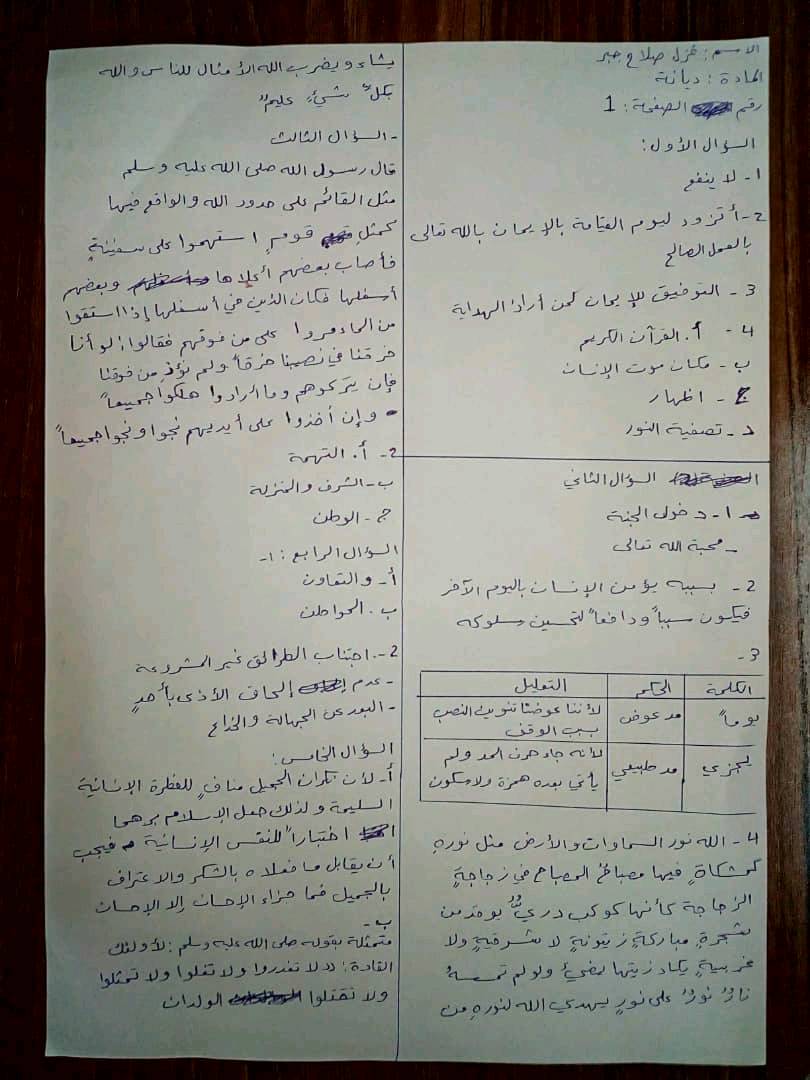 الاسم: غزل صلاح جبر
المادة: ديانة
رقم الصفحة: 1
السؤال الأول:
1- لا ينفع
2- أتزود ليوم القيامة بالإيمان بالله تعالى
بالعمل الصالح
3- التوفيق للإيمان لمن أراد الهداية
4- أ. القرآن الكريم
ب- مكان موت الإنسان
ج- اظهار
د- تصفية النور
السؤال الثاني
1- دخول الجنة
- محبة الله تعالى
2- بسببه يؤمن الإنسان باليوم الآخر
فيكون سبباً ودافعاً لتحسين سلوكه
3-
الكلمة الحكم التعليل
يوماً مد عوض لأننا عوضنا تنوين النصب
بسبب الوقف
يجزي مد طبيعي لأنه جاء حرف المد ولم
يأتي بعده همزة ولا سكون
4- الله نور السماوات والأرض مثل نوره
كمشكاةٍ فيها مصباحٌ المصباح في زجاجةٍ
الزجاجة كأنها كوكب دريٌّ يوقد من
شجرةٍ مباركةٍ زيتونةٍ لا شرقيةٍ ولا
غربيةٍ يكاد زيتها يضيءُ ولو لم تمسسهُ
نارٌ نورٌ على نورٍ يهدي الله لنوره من
يشاء ويضرب الله الأمثال للناس والله
بكلِّ شيءٍ عليمٌ
- السؤال الثالث
قال رسول الله صلى الله عليه وسلم
مثل القائم على حدود الله والواقع فيها
كمثل قومٍ استهموا على سفينةٍ
فأصاب بعضهم أعلاها وبعضهم
أسفلها فكان الذين في أسفلها إذا استقوا
من الماء مروا على من فوقهم فقالوا: لو أنا
خرقنا في نصيبنا خرقاً ولم نؤذِ من فوقنا
فإن يتركوهم وما أرادوا هلكوا جميعاً
وإن أخذوا على أيديهم نجوا ونجوا جميعاً
2- أ. التهمة
ب- الشرف والمنزلة
ج- الوطن
السؤال الرابع: 1-
أ- والتعاون
ب. المواطن
2- اجتناب الطرائق غير المشروعة
- عدم إلحاق الأذى بأحدٍ
- البعد عن الجهالة والخداع
السؤال الخامس:
أ- لأن نكران الجميل منافٍ للفطرة الإنسانية
السليمة ولذلك جعل الإسلام برهما
اختباراً للنفس الإنسانية فيجب
أن يقابل ما فعلاه بالشكر والاعتراف
بالجميل فما جزاء الإحسان إلا الإحسان
ب-
متمثلة بقوله صلى الله عليه وسلم: لأولئك
القادة: "لا تغدروا ولا تغلوا ولا تمثلوا
ولا تقتلوا الولدان